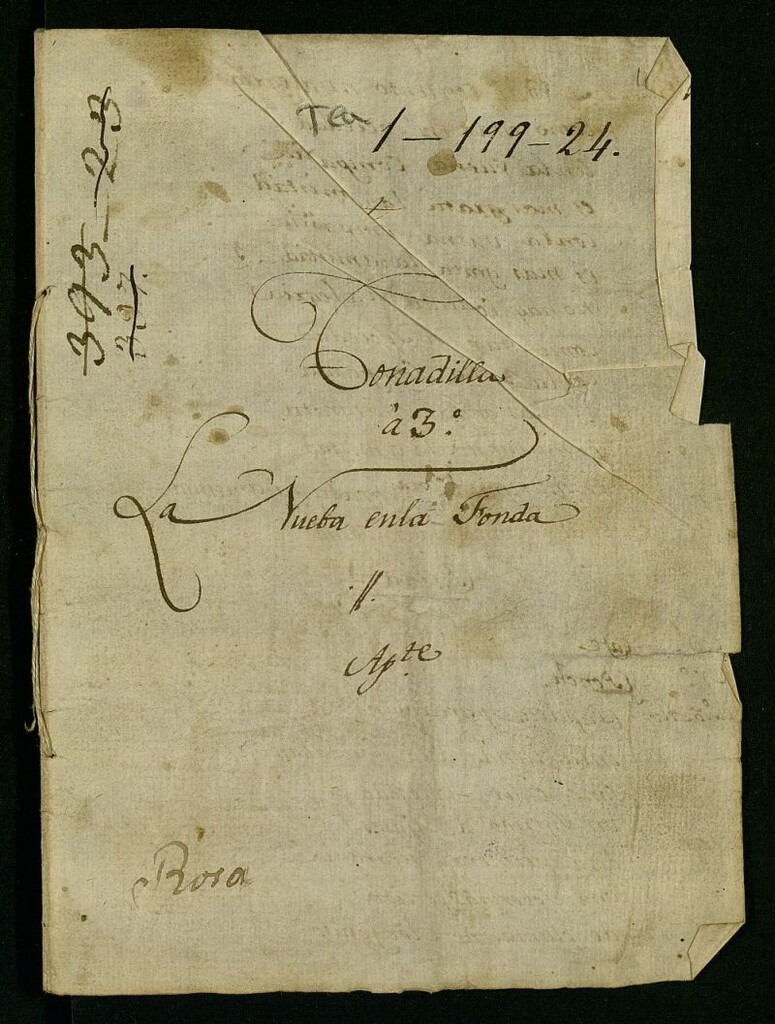 Tea 1-199-24.
393-23
307.
Tonadilla
à 3.º
La Nueba enla Fonda
//.
Apte
Rosa